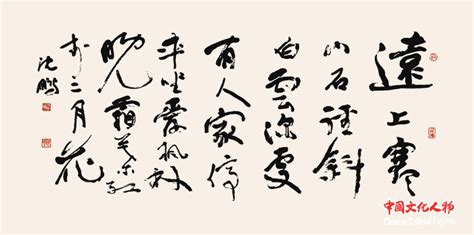 遠上寒
山石徑斜
白雲深處
有人家停
車坐愛楓林
晚霜葉紅
於二月花
沈鵬
中國文化人物